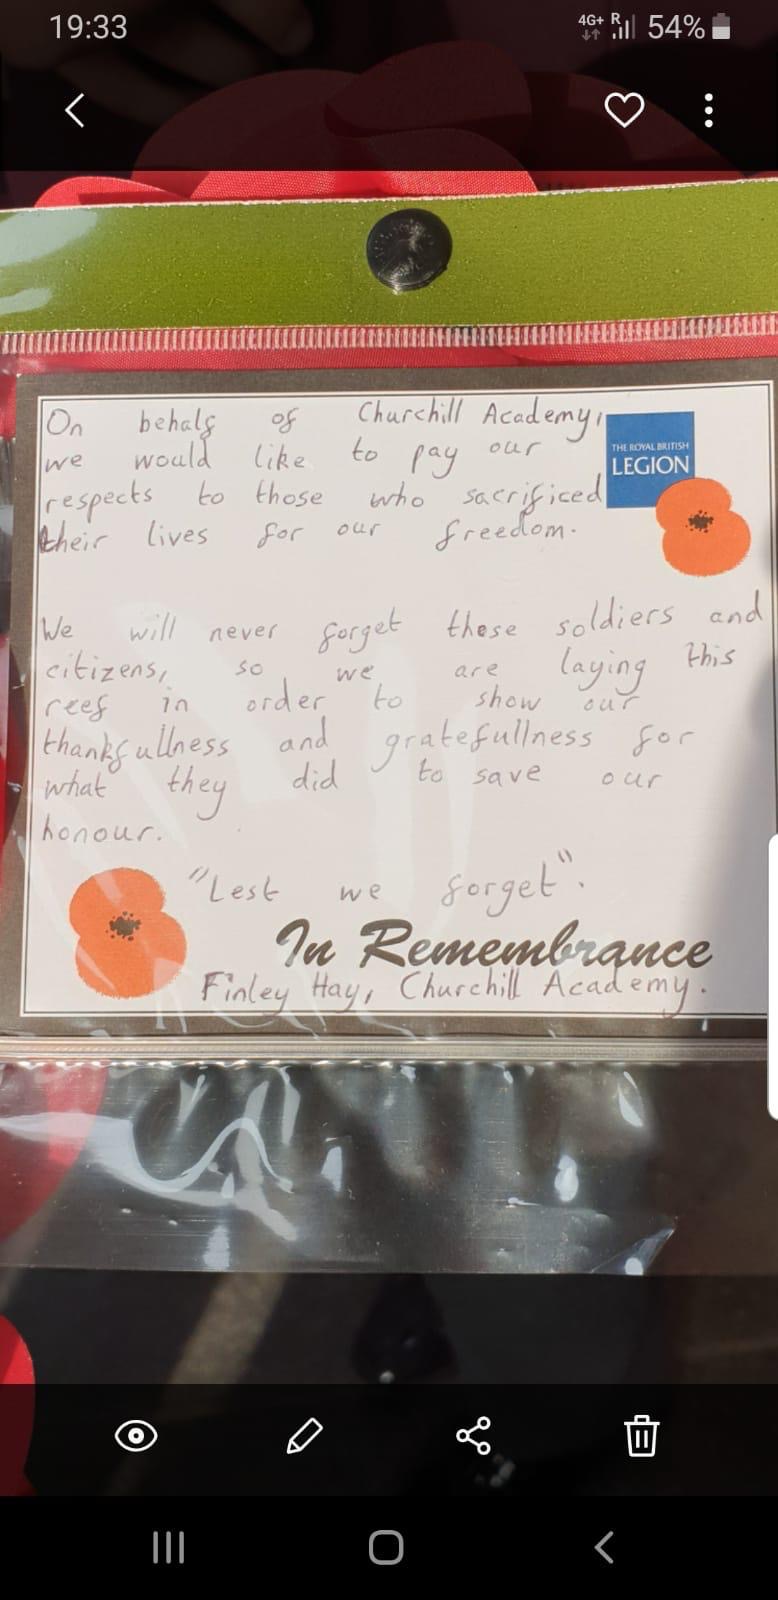 19:33 4G+ R 54%
On behalf of Churchill Academy,
we would like to pay our
respects to those who sacrificed
their lives for our freedom.
THE ROYAL BRITISH
LEGION
We will never forget these soldiers and
citizens, so we are laying this
reef in order to show our
thankfullness and gratefullness for
what they did to save our
honour.
"Lest we forget".
In Remembrance
Finley Hay, Churchill Academy.